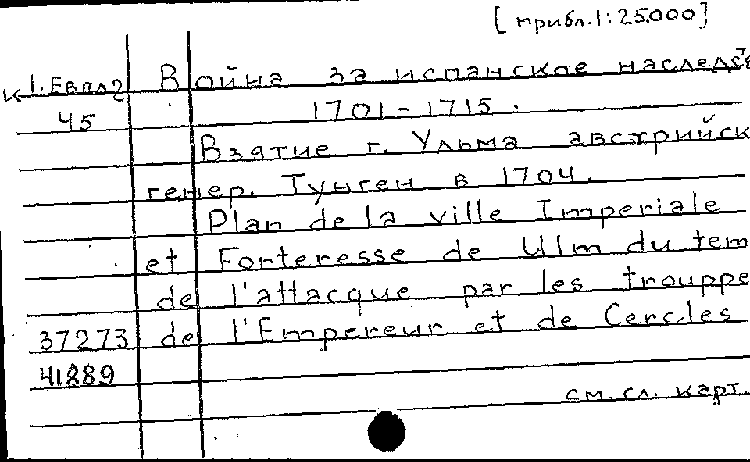 [прибл. 1:25000]
К 1. Евап2 Война за испанское наследст
45 1701-1715.
Взятие г. Ульма австрийск
генер. Тунген в 1704.
Plan de la ville Imperiale
et Forteresse de Ulm du tem
de l'attacque par les trouppe
37273 de l'Empereur et de Cercles
41889
см. сл. карт.